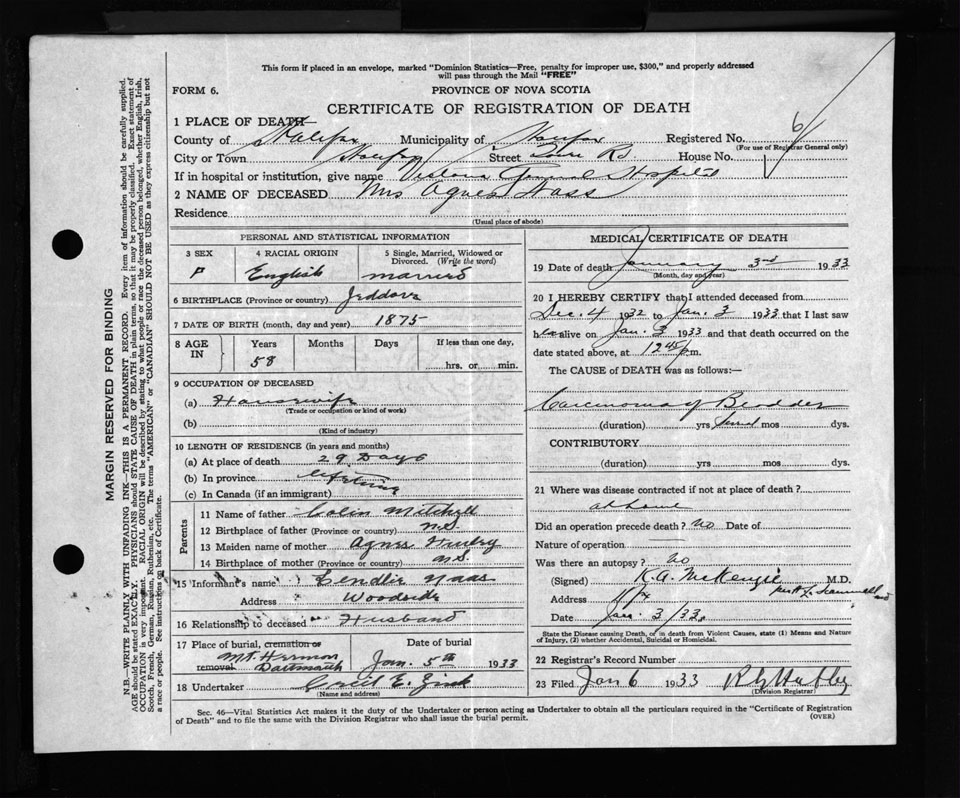 This form if placed in an envelope, marked "Dominion Statistics—Free, penalty for improper use, $300," and properly addressed
will pass through the Mail "FREE"
FORM 6. PROVINCE OF NOVA SCOTIA
CERTIFICATE OF REGISTRATION OF DEATH
1 PLACE OF DEATH
County of Halifax Municipality of Halifax Registered No. 6
(For use of Registrar General only)
City or Town Halifax Street House No.
If in hospital or institution, give name Victoria General Hospital
2 NAME OF DECEASED Mrs Agnes Nass
Residence
(Usual place of abode)
PERSONAL AND STATISTICAL INFORMATION
3 SEX 4 RACIAL ORIGIN 5 Single, Married, Widowed or
Divorced. (Write the word)
F English married
6 BIRTHPLACE (Province or country) Jeddore
7 DATE OF BIRTH (month, day and year) 1875
8 AGE IN Years Months Days If less than one day,
58 hrs. or min.
9 OCCUPATION OF DECEASED
(a) Housewife
(Trade or occupation or kind of work)
(b)
(Kind of industry)
10 LENGTH OF RESIDENCE (in years and months)
(a) At place of death 29 Days
(b) In province lifetime
(c) In Canada (if an immigrant)
Parents
11 Name of father Colin Mitchell
12 Birthplace of father (Province or country) N.S.
13 Maiden name of mother Agnes
14 Birthplace of mother (Province or country) N.S.
15 Informant's name Naas
Address Woodside
16 Relationship to deceased Husband
17 Place of burial, cremation or removal Date of burial
Mt. Hermon
Dartmouth Jan. 5th 1933
18 Undertaker Cecil E. Zink
(Name and address)
MEDICAL CERTIFICATE OF DEATH
19 Date of death January 3rd 1933
(Month, day and year)
20 I HEREBY CERTIFY that I attended deceased from
Dec. 4 1932 to Jan. 3 1933 that I last saw
her alive on Jan. 3 1933 and that death occurred on
date stated above, at 12 45 p.m.
The CAUSE of DEATH was as follows:—
Carcinoma of Bladder
(duration) yrs Several mos dys.
CONTRIBUTORY
(duration) yrs mos dys.
21 Where was disease contracted if not at place of death?
at home
Did an operation precede death? No Date of
Nature of operation —
Was there an autopsy? No
(Signed) K.A. McKenzie M.D.
Address Hfx
Date Jan. 3/33.
State the Disease causing Death, or in death from Violent Causes, state (1) Means and Nature
of Injury, (2) whether Accidental, Suicidal or Homicidal.
22 Registrar's Record Number
23 Filed Jan 6 1933
(Division Registrar)
Sec. 46—Vital Statistics Act makes it the duty of the Undertaker or person acting as Undertaker to obtain all the particulars required in the "Certificate of Registration
of Death" and to file the same with the Division Registrar who shall issue the burial permit. (OVER)
MARGIN RESERVED FOR BINDING
N.B.—WRITE PLAINLY WITH UNFADING INK—THIS IS A PERMANENT RECORD. Every item of information should be carefully supplied.
AGE should be stated EXACTLY. PHYSICIANS should STATE CAUSE OF DEATH in plain terms, so that it may be properly classified. Exact statement of
OCCUPATION is very important. RACIAL ORIGIN will be described by stating to what people or race the deceased person belonged, whether English, Irish,
Scotch, French, German, Russian, Ruthenian, etc. The terms "AMERICAN" or "CANADIAN" SHOULD NOT BE USED as they express citizenship but not
a race or people. See instructions on back of Certificate.